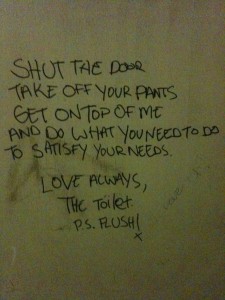 SHUT THE DOOR
TAKE OFF YOUR PANTS
GET ON TOP OF ME
AND DO WHAT YOU NEED TO DO
TO SATISFY YOUR NEEDS.
LOVE ALWAYS,
THE TOILET.
P.S. FLUSH!
x